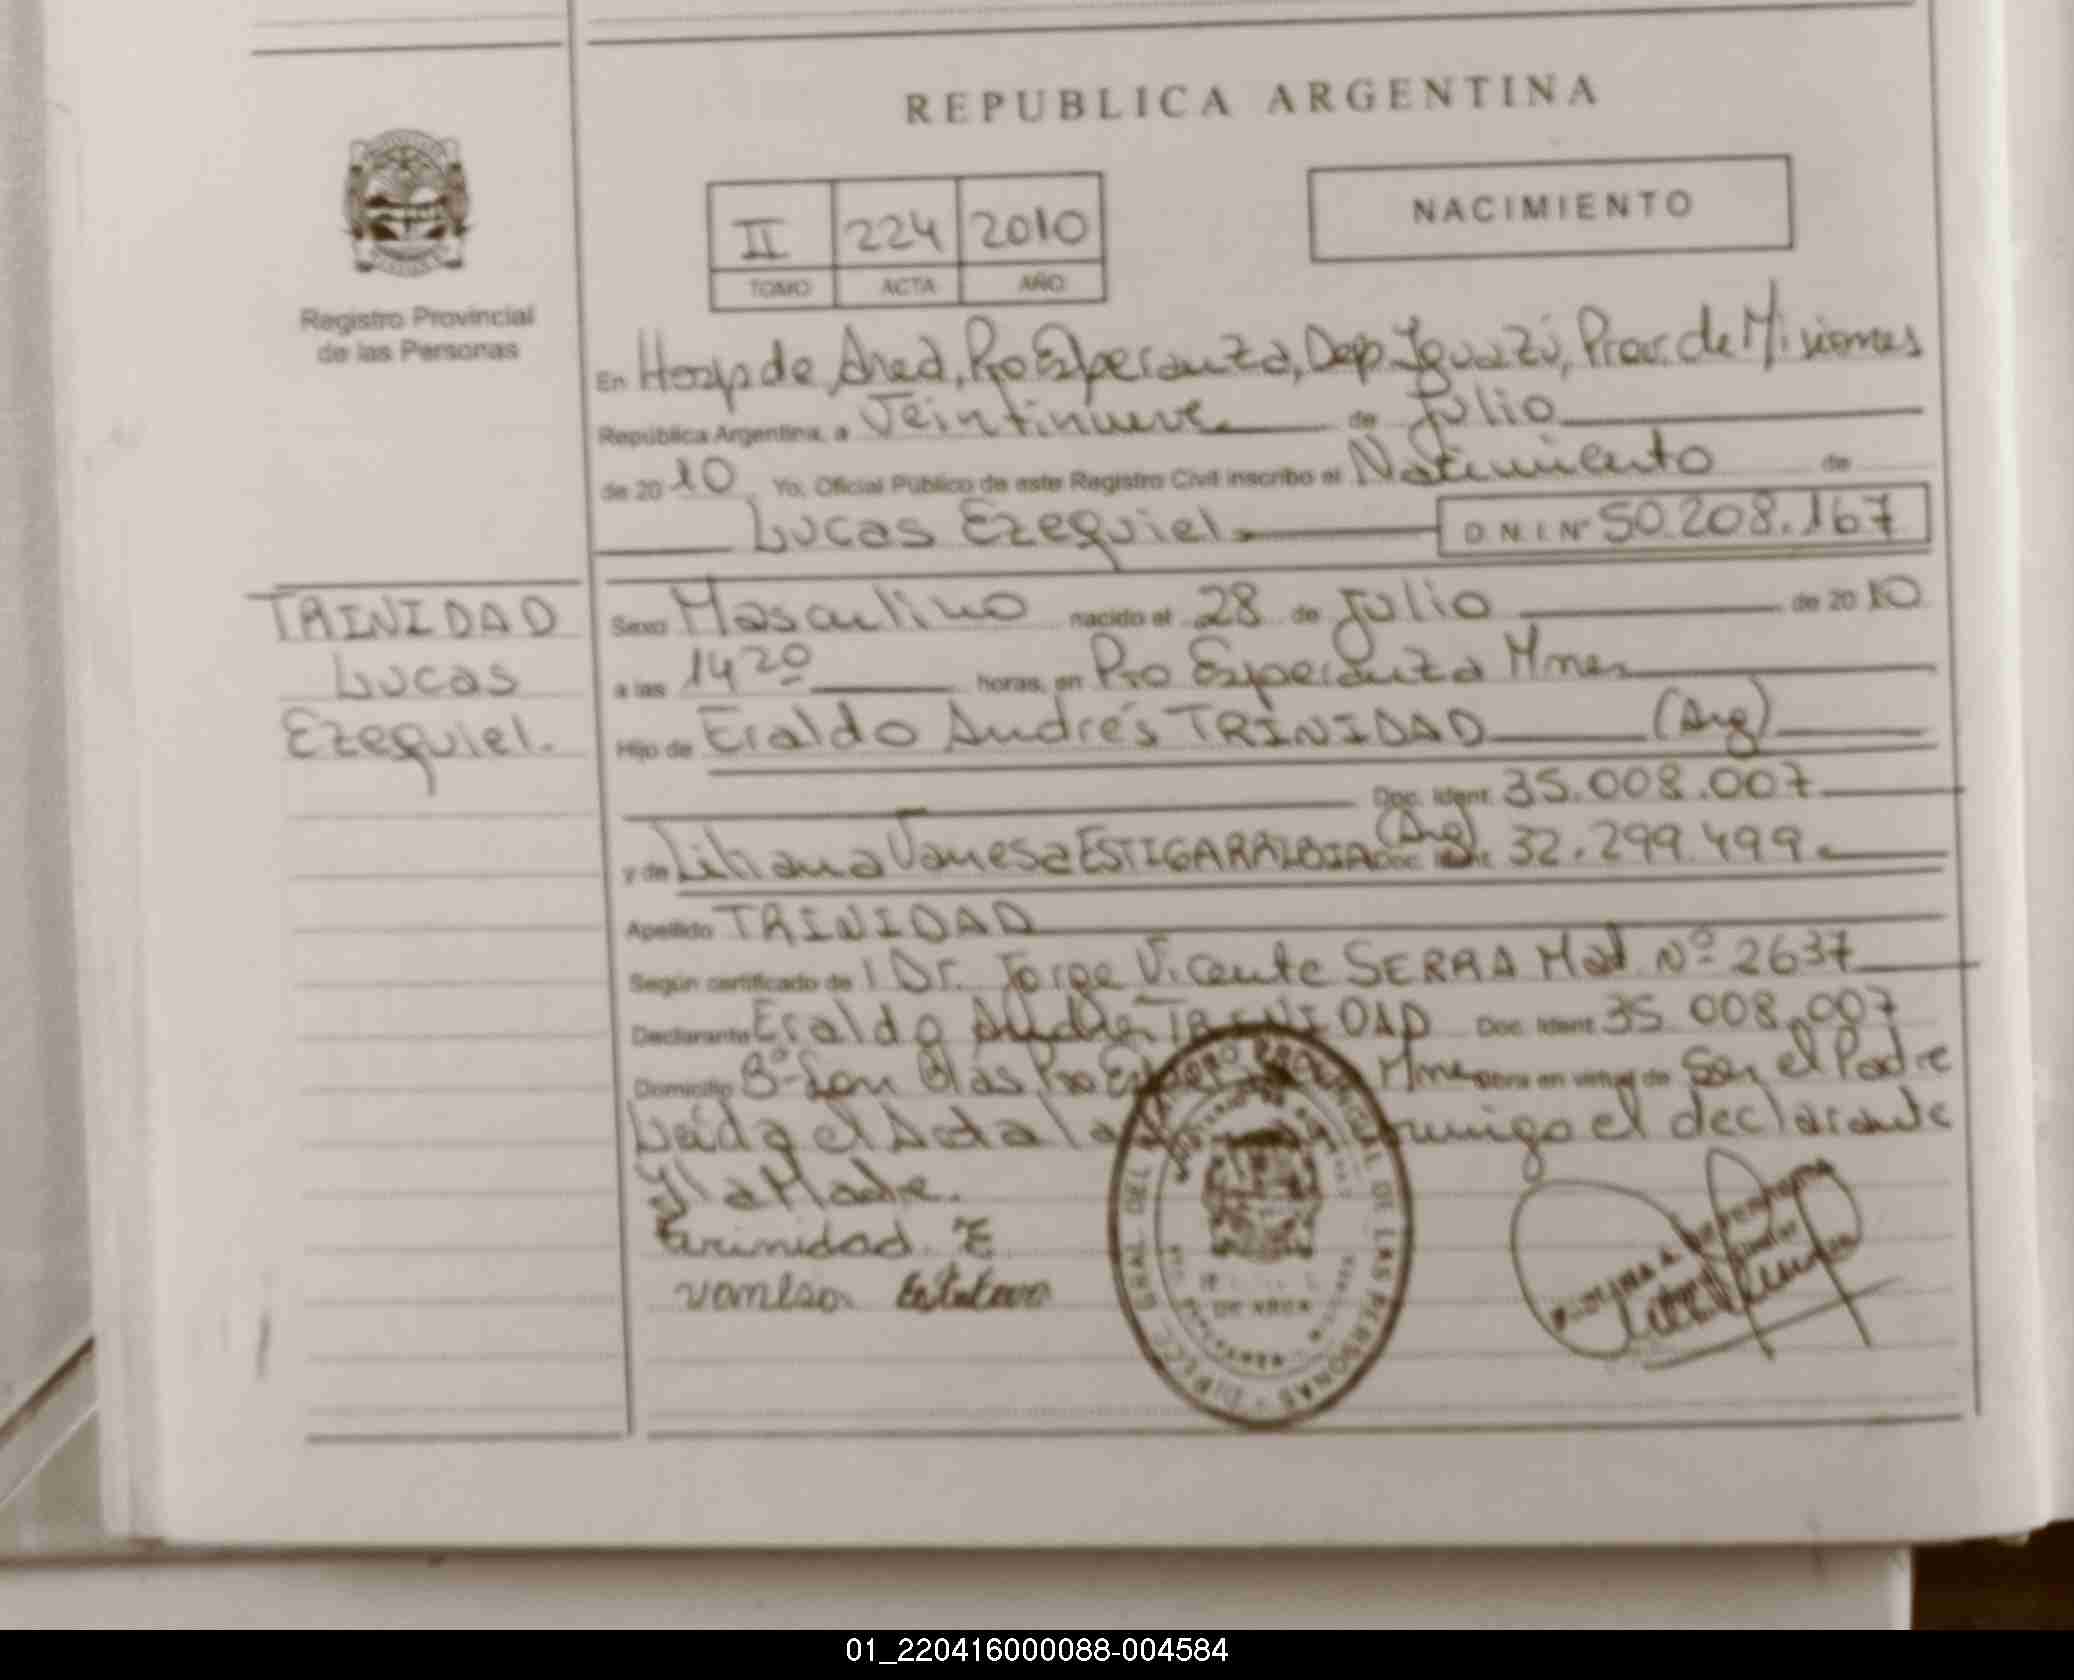 REPUBLICA ARGENTINA
NACIMIENTO
II 224 2010
TOMO ACTA AÑO
Registro Provincial
de las Personas
En Hosp de Area, Pto Esperanza, Dep. Iguazú, Prov. de Misiones
República Argentina, a Veintinueve de Julio
de 2010 Yo, Oficial Público de este Registro Civil inscribo el Nacimiento de
Lucas Ezequiel D.N.I. Nº 50.208.167
TRINIDAD
Lucas
Ezequiel.
Sexo Masculino nacido el 28 de Julio de 2010
a las 14 20 horas, en Pto Esperanza Mnes
Hijo de Eraldo Andrés TRINIDAD (Arg)
Doc. Ident. 35.008.007
y de Liliana Vanesa ESTIGARRIBIA (Arg) Doc. Ident. 32.299.499
Apellido TRINIDAD
Según certificado de Dr. Jorge Vicente SERRA Mat Nº 2637
Declarante Eraldo Andrés TRINIDAD Doc. Ident. 35 008.007
Domicilio Bº San Blas Pto Mnes Obra en virtud de Ser el Padre
Leida el Acta la el declarante
y la Madre.
trinidad. E
vanesa
REGISTRO PROVINCIAL DE LAS PERSONAS
01_220416000088-004584